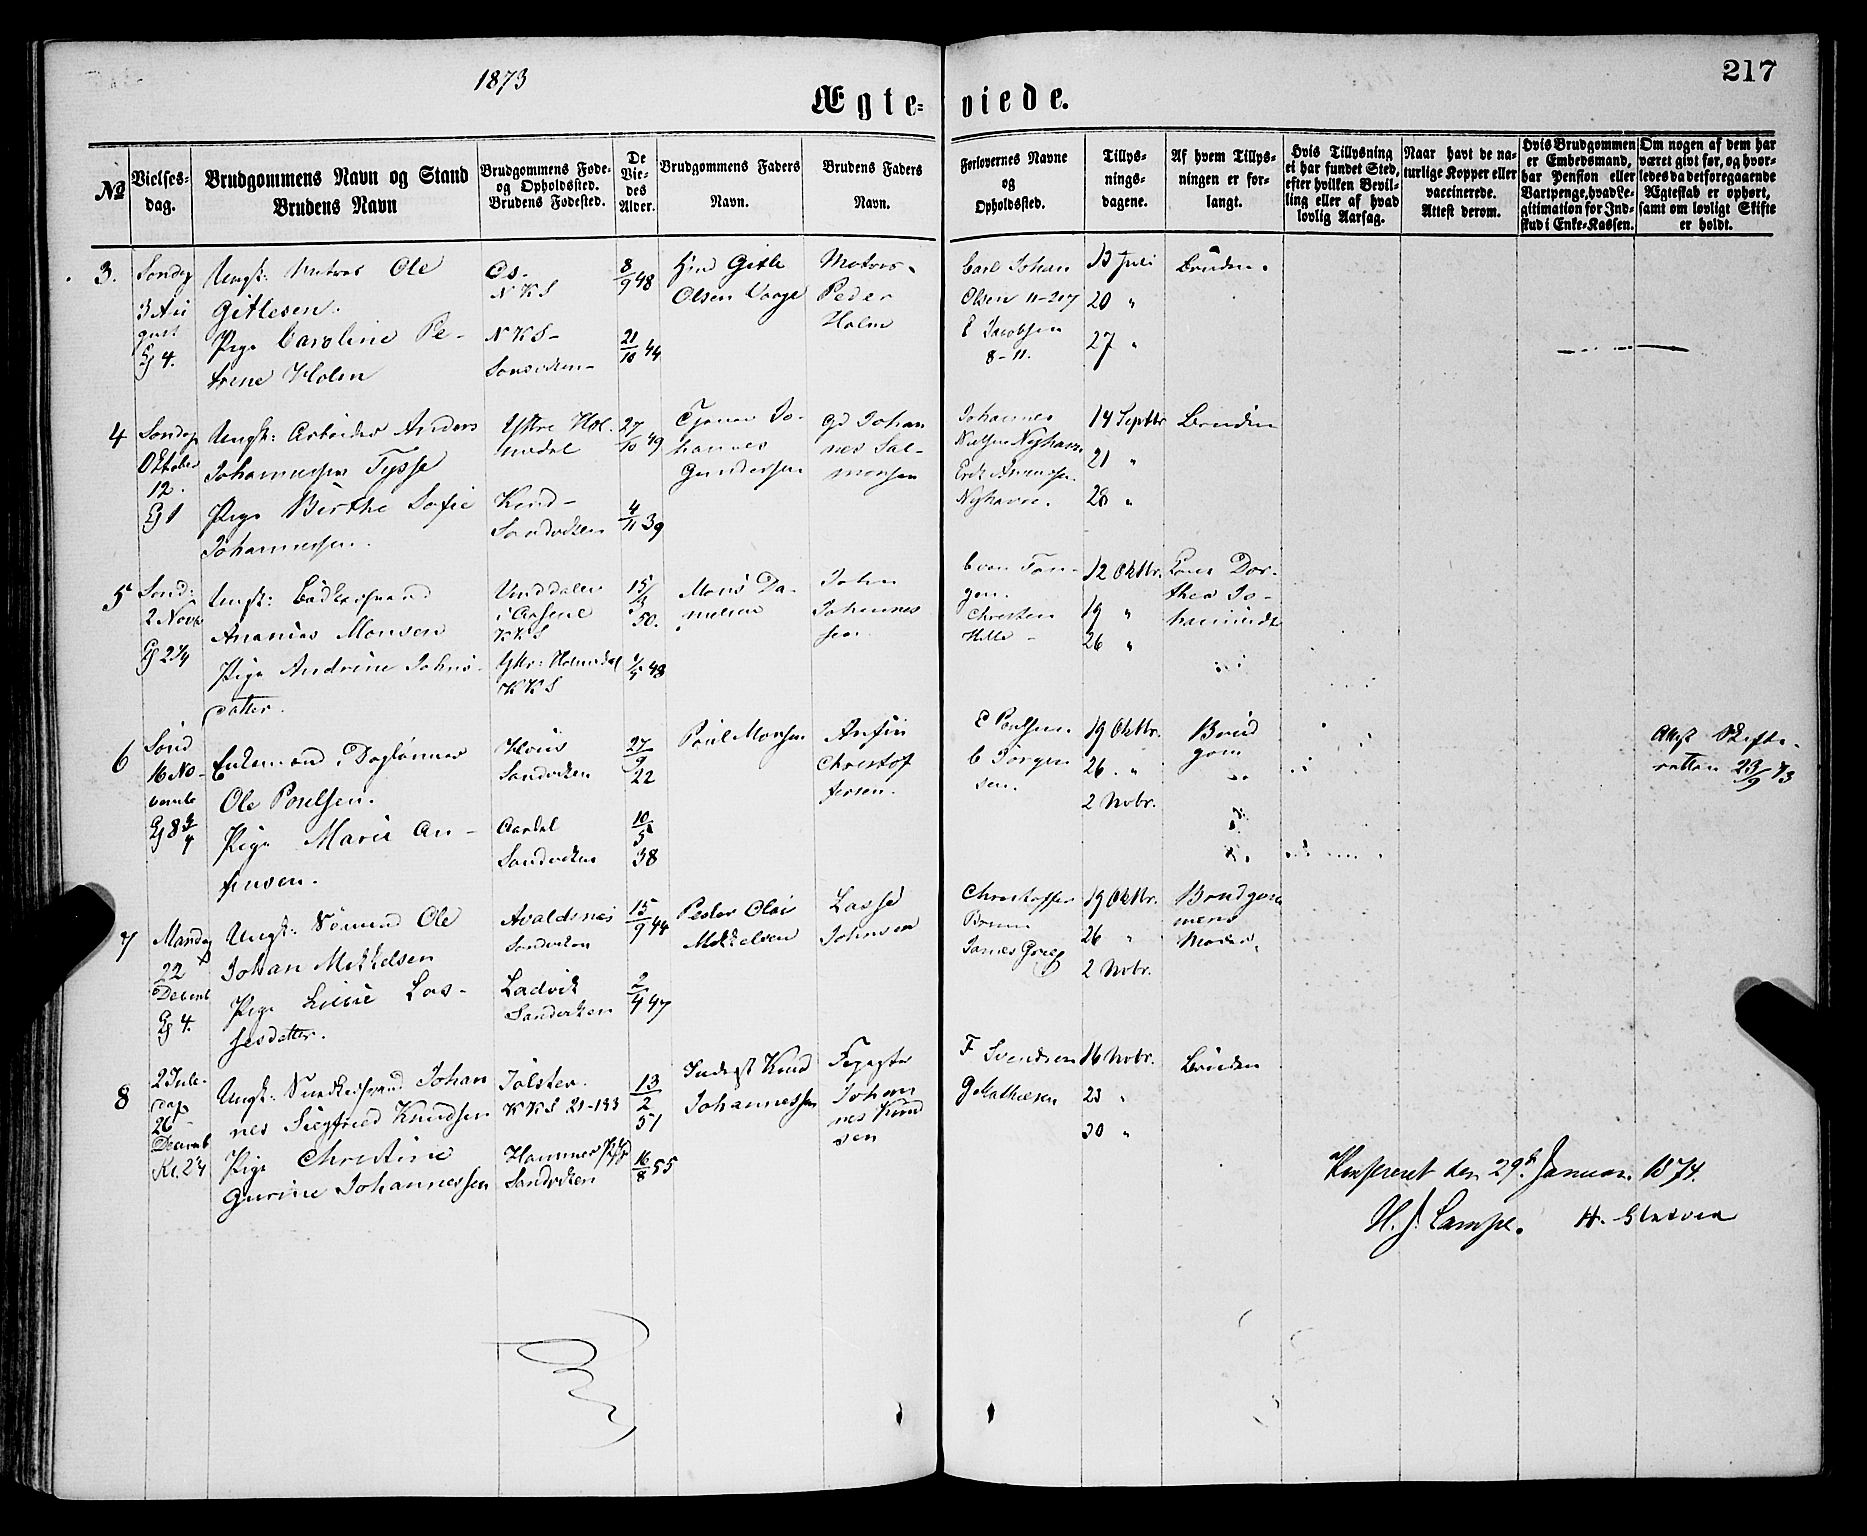 1873
217
Ægte-viede.
No
Vielses-dag.
Brudgommens Navn og Stand
Brudens Navn
Brudgommens Føde- og Opholdssted.
Brudens Fødested.
De Vie-des Alder.
Brudgommens Faders Navn.
Brudens Faders Navn.
Forlovernes Navne og Opholdssted.
Tillys-nings-dagene.
Af hvem Tillys-ningen er for-langt.
Hvis Tillysning ei har fundet Sted, efter hvilken Bevil-ling eller af hvad lovlig Aarsag.
Naar havt de na-turlige Kopper eller vaccinerede. Attest derom.
Hvis Brudgommen er Embedsmand, har Pension eller Vartpenge, hvad Le-gitimation for Ind-skud i Enke-Kassen.
Om nogen af dem har været givt før, og hvor-ledes da det foregaaende Ægteskab er ophørt, samt om lovligt Skifte er holdt.
3.
Søndag
3 Au
gust
Kl 4.
Ungk: Matros Ole
Gitlesen.
Pige Caroline Pe-
trine Holm
Os.
NKS
NKS-
Sandviken-
8/9 48
21/10 44
Gmd Gitle
Olsen Vaage
Matros
Peder
Holm
Carl Johan
Olsen 11-217
E Jacobsen
8-11.
13 Juli
20 "
27 "
Bruden.
4
Søndag
Oktober
12.
Kl 1
Ungk: Arbeider Anders
Johannessen Tysse
Pige Birthe Sofie
Johannessen.
Ytre Hol
medal
Kind-
Sandviken
27/10 49
4/11 39
Tjener Jo-
hannes
Gundersen
Gd Johan
nes Sal-
monsen
Johannes
Nielsen Nyhavn
Nyhavn.
14 Septbr
21 "
28 "
Bruden
5
Sønd:
2 Novb
Kl 2 1/4
Ungk: Bødkersvend
Ananias Monsen
Pige Andrine Johns-
datter.
KKS
Ytr: Holmedal
KKS
15/3 50.
1/5 48
Mons Da-
nielsen
John
Johannes
sen.
Christen
Hille -
12 Oktbr.
19 "
26 "
Dor-
thea Jo-
6
Sønd
16 No-
vembr
Kl 8 3/4
Enkemand, Daglønner
Ole Poulsen.
Pige Marie An-
finsen.
Hous
Sandviken
Aardal
Sandviken
27/9 22
10/5 38
Poul Monsen
Anfin
Christof
fersen.
E Poulsen
C Jørgen
sen.
19 Oktbr.
26. "
2 Novbr.
Brud
gom
Attest Skifte-
retten 23/9 73
7
Mandag
22
Decemb
Kl 4.
Ungk: Sømand Ole
Johan Mikkelsen
Pige Lisie Las-
sesdatter.
Avaldsnes
Sandviken
Ladvik
Sandviken
15/9 44
2/4 47
Peder Olai
Mikkelsen
Lasse
Johnsen
Christoffer
Brun
James Grieg
19 Oktbr.
26 "
2 Novbr.
Brudgom
mens
Moder.
8
2 Jule-
dag
26
Decemb
Kl. 2 1/4
Ungk: Snedkersvend Johan
nes Siegfried Knudsen
Pige Christine
Gurine Johannessen
Jølster.
KKS 21-193
Hammer
Sandviken
13/2 51
16/8 55
Inderst Knud
Johannessen
Johan
nes Knud
sen
F Svendsen
G Mathiesen
16 Novbr.
23 "
30 "
Bruden
Konfereret den 29de Januar 1874.
H. J. Lampe. H. Gladved